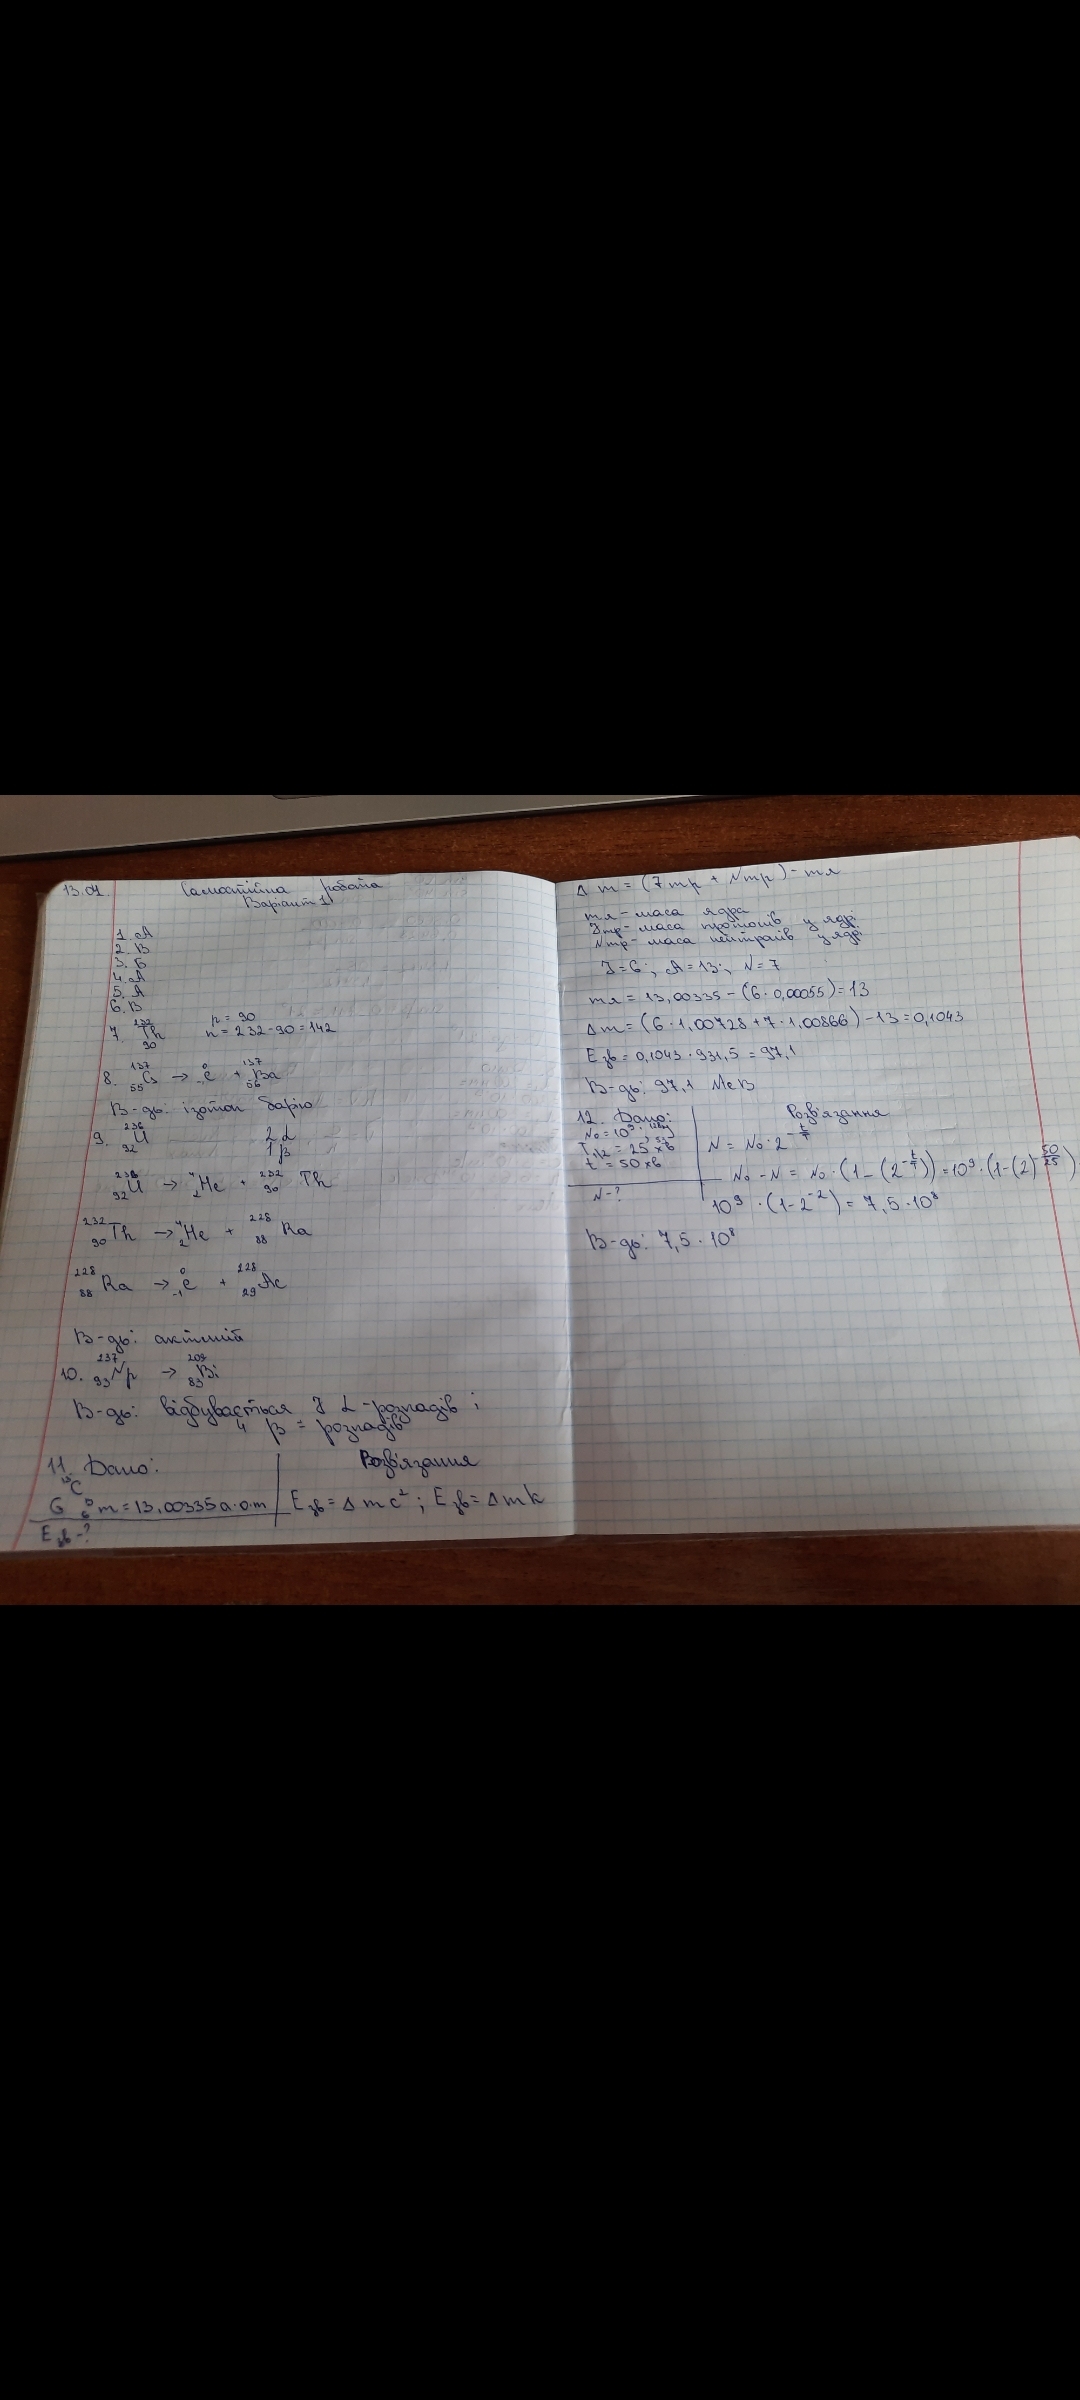 13.01.
Самостійна робота
Варіант 1
1. А
2. В
3. Б
4. А
5. А
6. В
7. ²³²₉₀Th p = 90
n = 232-90 = 142
8. ¹³⁷₅₅Cs → ⁰₋₁e + ¹³⁷₅₆Ba
В-дь: ізотоп барію
9. ²³⁶₉₂U 2α
1β
²³⁶₉₂U → ⁴₂He + ²³²₉₀Th
²³²₉₀Th → ⁴₂He + ²²⁸₈₈Ra
²²⁸₈₈Ra → ⁰₋₁e + ²²⁸₂₉Ac
В-дь: актиній
10. ²³⁷₉₃Np → ²⁰⁹₈₃Bi
В-дь: відбувається 7 α-розпадів;
4 β⁻ розпадів
11. Дано: Розв'язання
¹³₆C
m = 13,00335 а.о.м Eзв = Δmc²; Eзв = Δmk
Eзв-?
Δm = (Zmp + Nmp) - mя
mя - маса ядра
Zmp - маса протонів у ядрі
Nmp - маса нейтранів у ядрі
Z = 6; A = 13; N = 7
mя = 13,00335 - (6·0,00055) = 13
Δm = (6·1,00728 + 7·1,00866) - 13 = 0,1043
Eзв = 0,1043·931,5 = 97,1
В-дь: 97,1 МеВ
12. Дано: Розв'язання
N₀ = 10⁹
T₁/₂ = 25 хв
t = 50 хв
N = N₀·2^(-t/T)
N₀ - N = N₀·(1-(2^(-t/T))) = 10⁹·(1-(2)^(-50/25))
N-?
10⁹·(1-2⁻²) = 7,5·10⁸
В-дь: 7,5·10⁸